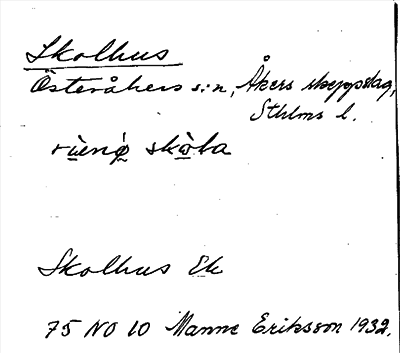 Skolhus
Österåkers s:n, Åkers skeppslag,
Sthlms l.
skola
Skolhus Ek
75 NO 10 Manne Eriksson 1932.